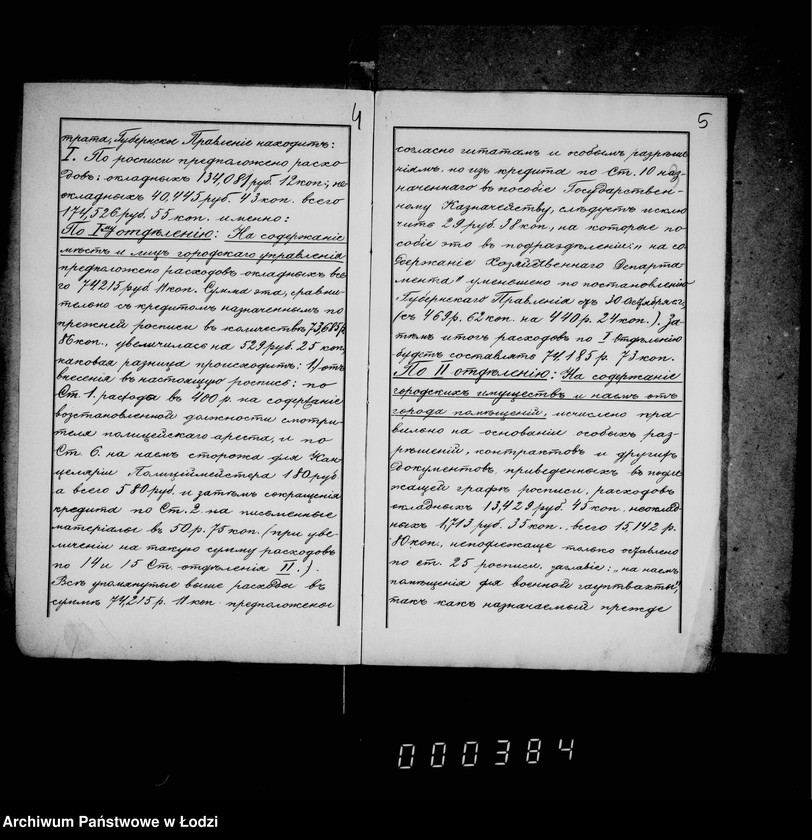 4
трата, Губернское Правленіе находитъ:
I. По росписи предположено расхо-
довъ: окладныхъ 134,081 руб. 12 коп.; не
окладныхъ 40,445 руб. 43 коп. всего
174,526 руб. 55 коп. именно:
По Iму отдѣленію: На содержаніе
мѣстъ и лицъ городскаго управленія
предположено расходовъ окладныхъ все
го 74215 руб 11 коп. Сумма эта, сравни-
тельно съ кредитомъ назначеннымъ по
прежней росписи въ количествѣ 73,685 р.
86 коп., увеличилась на 529 руб. 25 коп.
каковая разница происходитъ: 1) отъ
внесенія въ настоящую роспись: по
Ст. 1. расхода въ 400 р. на содержаніе
возстановленной должности смотри-
теля полицейскаго ареста, и по
Ст 6. на наемъ сторожа для Кан-
целяріи Полиціймейстера 180 руб
а всего 580 руб. и затѣмъ сокращенія
кредита по Ст. 2 на письменные
матеріалы въ 50 р. 75 коп. (при уве-
личеніи на такую сумму расходовъ
по 14 и 15 Ст. отдѣленія II.).
Всѣ упомянутые выше расходы въ
суммѣ 74,215 р. 11 коп. предположены
5
согласно штатамъ и особымъ разрѣше
ніямъ, но изъ кредита по Ст. 10 наз-
наченнаго въ пособіе Государствен-
ному Казначейству, слѣдуетъ исклю
чить 29 руб. 38 коп., на которые по
собіе это въ подраздѣленіи: „на со
держаніе Хозяйственнаго Департа-
мента" уменьшено по постановленію
Губернскаго Правленія отъ 30 Октября сг.
(съ 469 р. 62 коп. на 440 р. 24 коп.). За-
тѣмъ итогъ расходовъ по I отдѣленію
будетъ составлять 74,185 р. 73 коп.
По II отдѣленію: На содержаніе
городскихъ имуществъ и наемъ отъ
города помѣщеній; исчислено пра-
вильно на основаніи особыхъ раз-
рѣшеній, контрактовъ и другихъ
документовъ, приведенныхъ въ подле
жащей графѣ росписи, расходовъ
окладныхъ 13,429 руб. 45 коп. неоклад
ныхъ 1,713 руб. 35 коп.. всего 15142 р.
80 коп., неподлежаще только оставлено
по ст. 25 росписи, заглавіе: „на наемъ
помѣщенія для военной гауптвахты",
такъ какъ назначаемый прежде
000384
Archiwum Państwowe w Łodzi